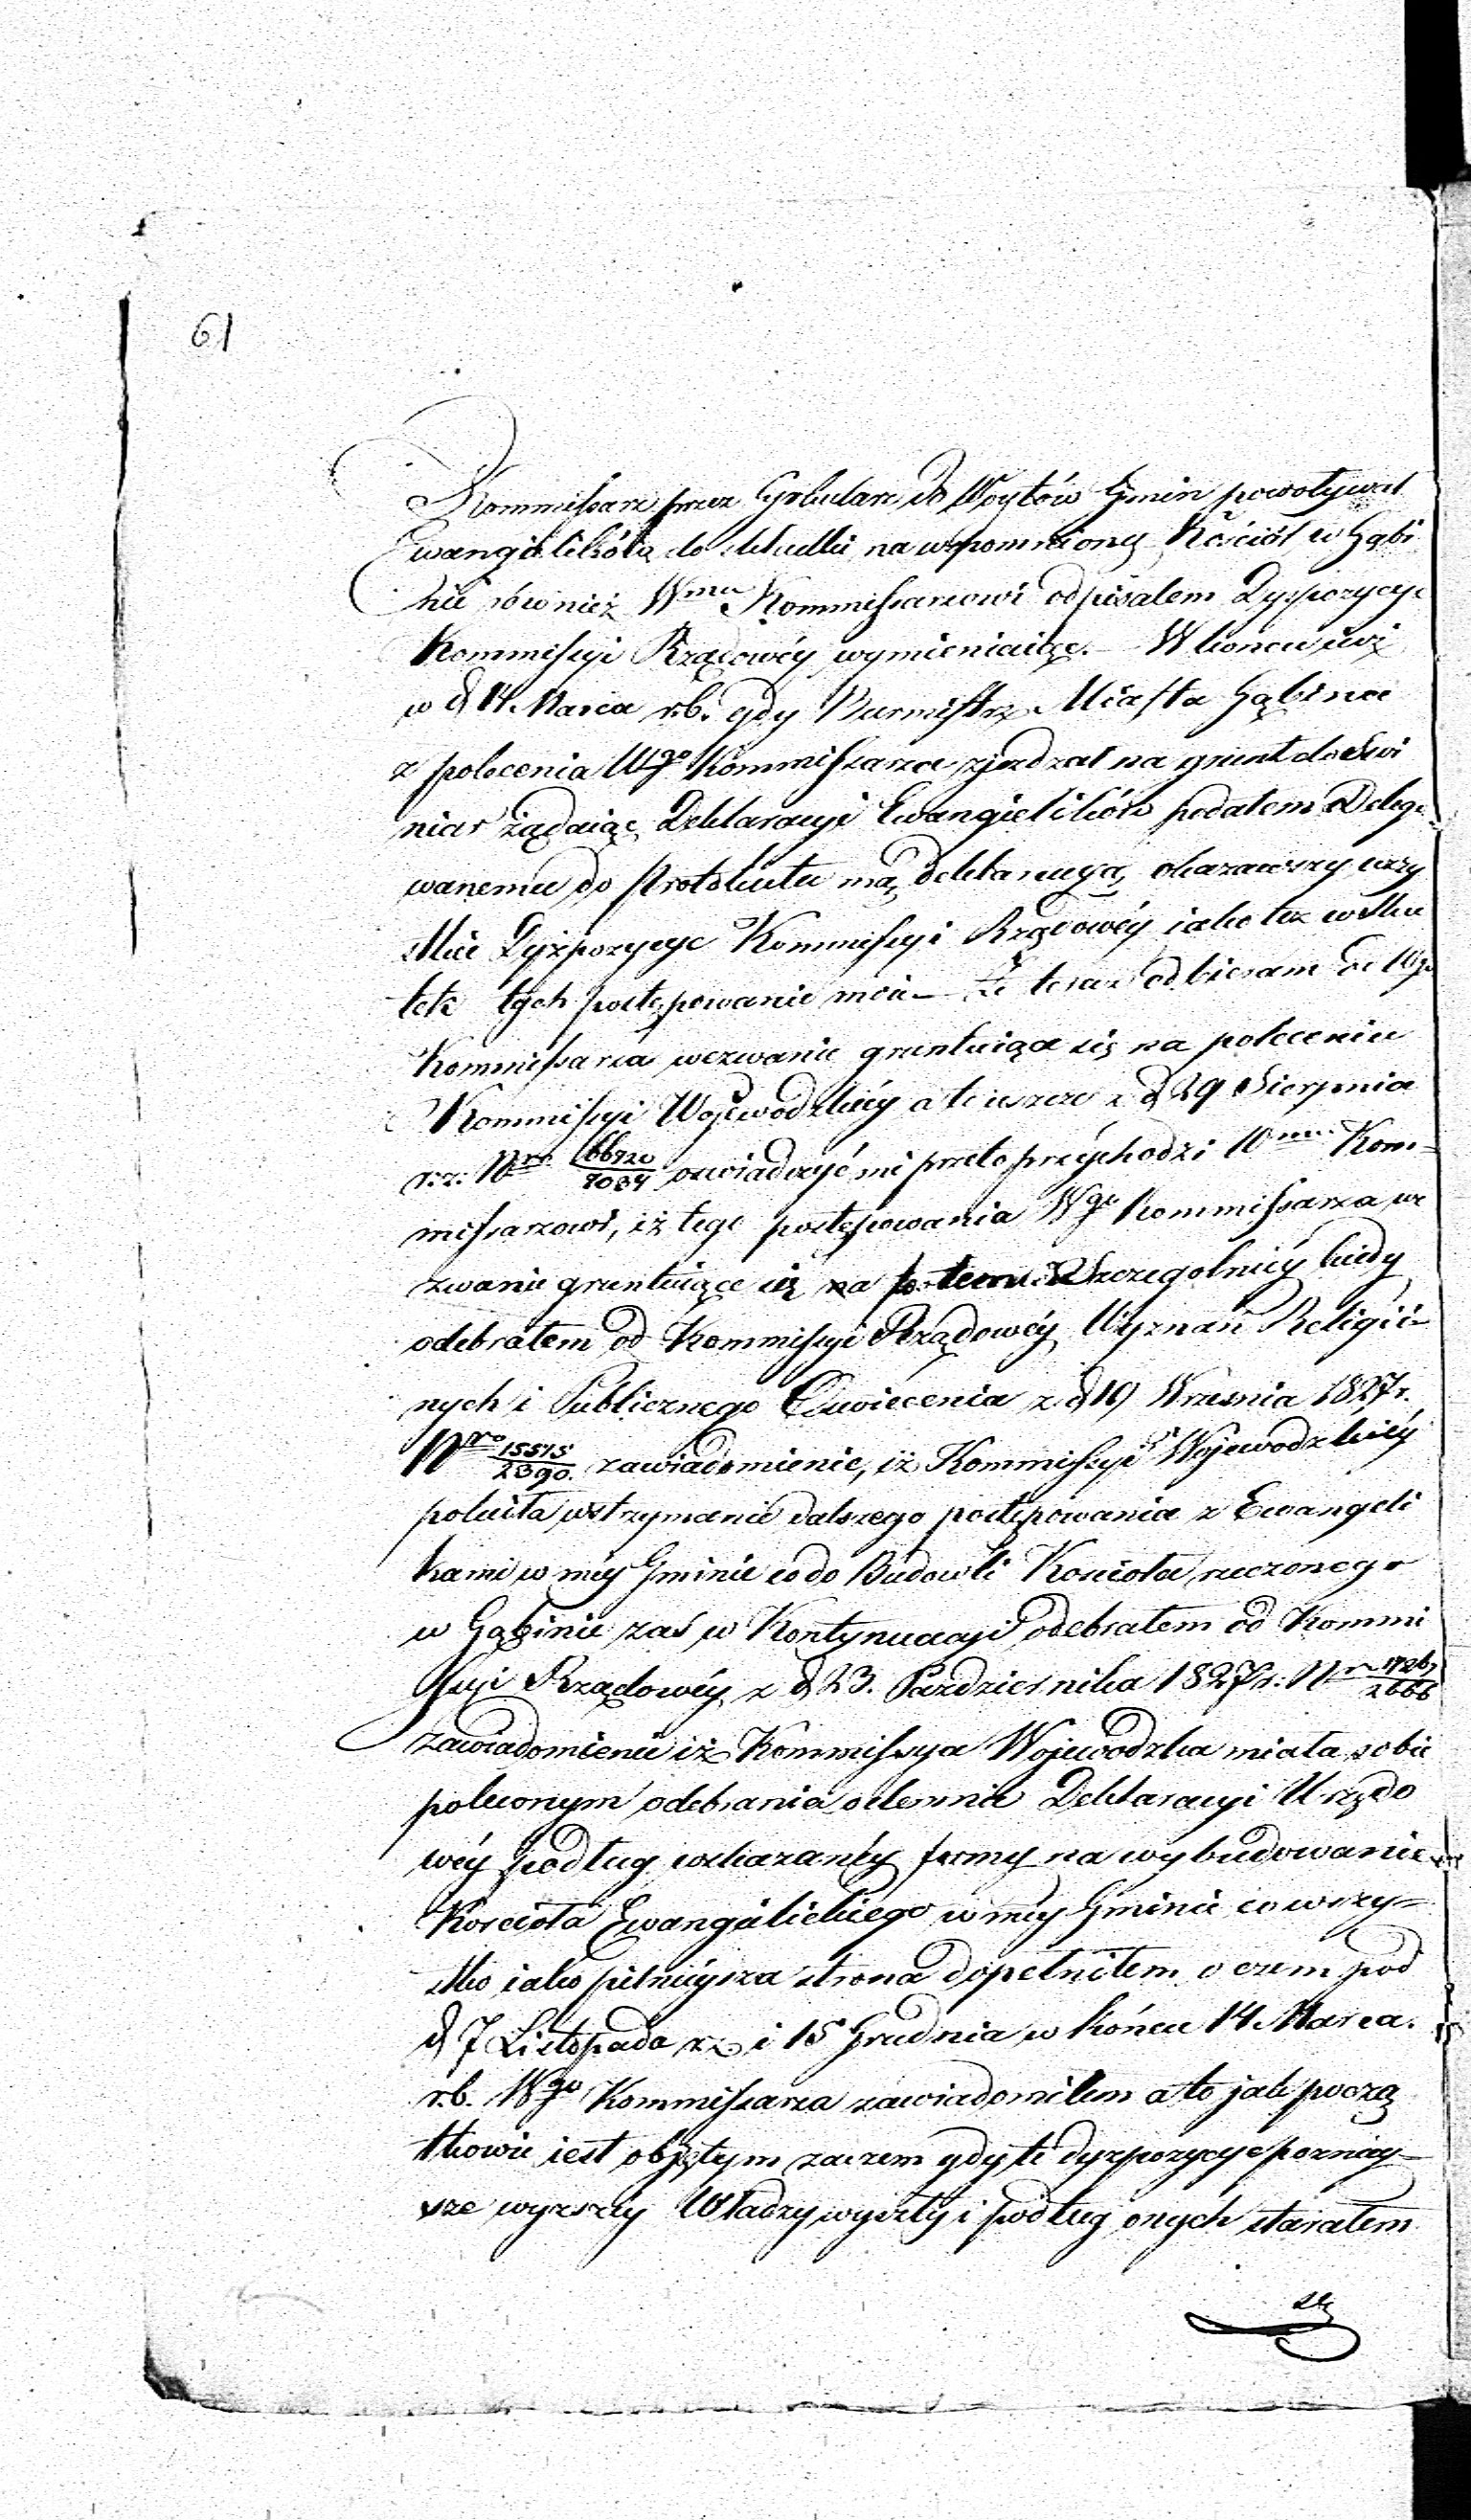 61
Kommissarz przez Cyrkularz do Woytów Gmin powoływał
Ewangielików do składki na wspomniony Kościół w Gąbi
nie również Wmu Kommissarzowi odpisałem Dyspozycye
Kommissyi Rządowéy wymieniaiąc. W końcu iuż
w d 14 Marca r.b. gdy Burmistrz Miasta Gąbina
z polecenia Wgo Kommissarza zjeżdzał na grunt do Świ
niar żądaiąc Deklaracyi Ewangielików podałem Delego
wanemu do Protokułu mą deklaracyą, okazawszy wszy
stkie Dyżpozycye Kommissyi Rządowéy iako też w sku
tek tych postępowanie moie – Że teraz odbieram od Wgo
Kommissarza wezwanie gruntuiące się na poleceniu
Kommissyi Wojewodzkiéy a to ieszcze z d 29 Sierpnia
r: z: Nro 66720/8084 oświadczyć mi przeto przychodzi Wmu Kom=
missarzowi, iż tego postępowania Wgo Kommissarza we
zwanie gruntuiące się na potem Szczegolniéy kiedy
odebrałem od Kommissyi Rządowéy Wyznań Religii=
nych i Publicznego Oświecenia z d 19 Wrzesnia 1827 r.
Nro 15515/2390. zawiadomienie, iż Kommissyi Wojewodzkiéy
poleciła wstrzymanie dalszego postępowania z Ewangieli
kami w méy Gminie co do Budowli Kościoła rzeczonego
w Gąbinie zaś w Kontynuacyi odebrałem od Kommi
ssyi Rządowéy z d 23. Pazdziernika 1827 r: Nro 17267/2666
zawiadomienie iż Kommissya Wojewodzka miała sobie
poleconym odebrania odemnie Deklaracyi Urzędo
wéy podług wskazanéy formy na wybudowanie
Kościoła Ewangielickiego w méy Gminie co wszy=
stko iako pilnieysza strona dopełniłem o czem pod
d 7 Listopada r z i 15 Grudnia w końcu 14 Marca.
r.b. Wgo Kommissarza zawiadomiłem a to jak począ
tkowie iest objętym zaczem gdy te dyzpozycye pozniéy=
sze wyzszéy Władzy wyszły i podług onych starałem
się